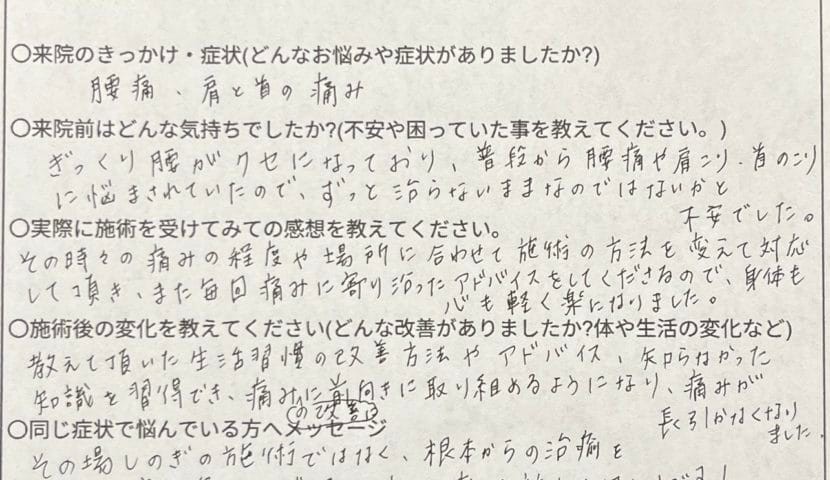 〇来院のきっかけ・症状(どんなお悩みや症状がありましたか?)
腰痛、肩と首の痛み
〇来院前はどんな気持ちでしたか?(不安や困っていた事を教えてください。)
ぎっくり腰がクセになっており、普段から腰痛や肩こり、首のこり
に悩まされていたので、ずっと治らないままなのではないかと
不安でした。
〇実際に施術を受けてみての感想を教えてください。
その時々の痛みの程度や場所に合わせて施術の方法を変えて対応
して頂き、また毎回痛みに寄り沿ったアドバイスをしてくださるので、身体も
心も軽く楽になりました。
〇施術後の変化を教えてください(どんな改善がありましたか?体や生活の変化など)
教えて頂いた生活習慣の改善方法やアドバイス、知らなかった
知識を習得でき、痛みに前向きに取り組めるようになり、痛みが
の改善に
長く引かなくなり
ました。
〇同じ症状で悩んでいる方へメッセージ
その場しのぎの施術ではなく、根本からの治癒を